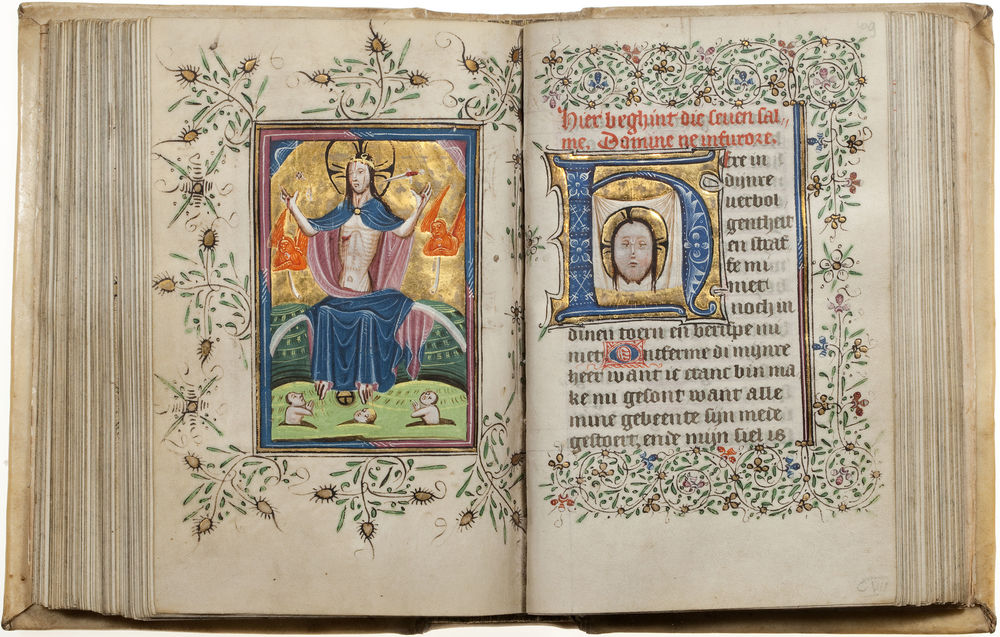 99
Hier beghint die seuen sal//
me. Domine ne in furore.
Here in
dijnre
uerbol
gentheit
en straf
fe mi
niet
noch in
dinen toern en berispe mi
niet Ontferme di mijnre
heer want ic cranc bin ma
ke mi gesont want alle
mine gebeente sijn mede
gestoert, ende mijn siel is